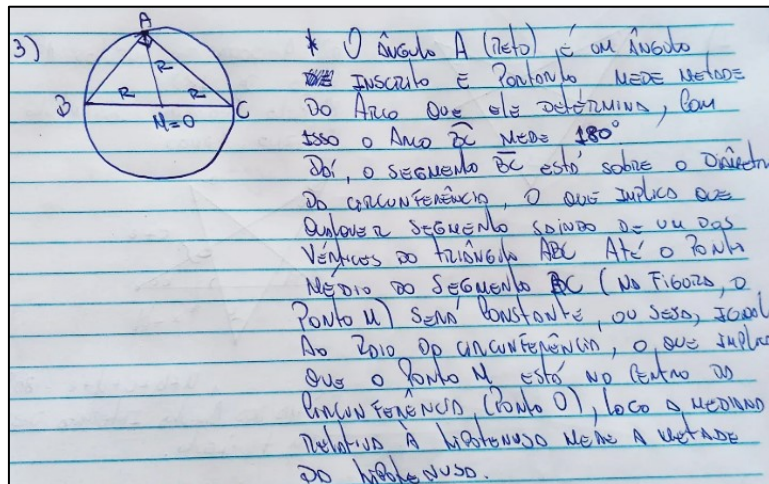 3)
A
R
B R R C
M=O
* O ÂNGULO A (RETO) É UM ÂNGULO
INSCRITO E PORTANTO MEDE METADE
DO ARCO QUE ELE DETERMINA, COM
ISSO O ARCO BC MEDE 180°
DAÍ, O SEGMENTO BC ESTÁ SOBRE O DIÂMETRO
DA CIRCUNFERÊNCIA, O QUE IMPLICA QUE
QUALQUER SEGMENTO SAINDO DE UM DOS
VÉRTICES DO TRIÂNGULO ABC ATÉ O PONTO
MÉDIO DO SEGMENTO BC (NA FIGURA, O
PONTO M) SERÁ CONSTANTE, OU SEJA, IGUAL
AO RAIO DA CIRCUNFERÊNCIA, O QUE IMPLICA
QUE O PONTO M ESTÁ NO CENTRO DA
CIRCUNFERÊNCIA (PONTO O), LOGO A MEDIANA
RELATIVA À HIPOTENUSA MEDE A METADE
DA HIPOTENUSA.